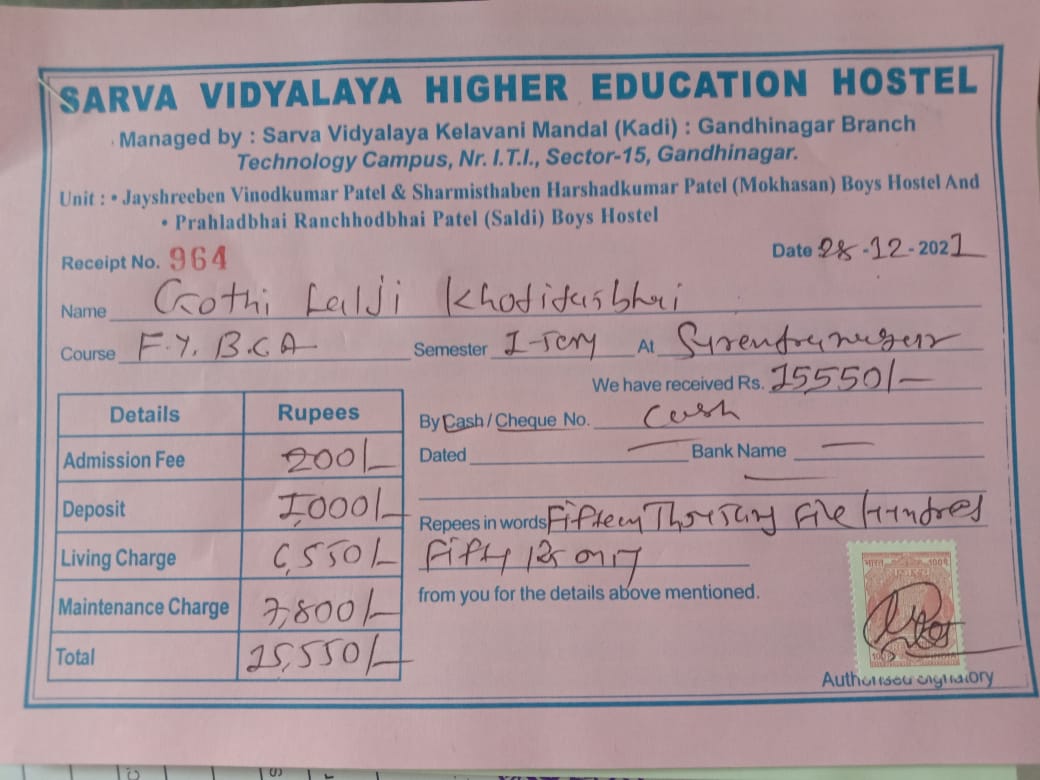 SARVA VIDYALAYA HIGHER EDUCATION HOSTEL
Managed by : Sarva Vidyalaya Kelavani Mandal (Kadi) : Gandhinagar Branch
Technology Campus, Nr. I.T.I., Sector-15, Gandhinagar.
Unit : • Jayshreeben Vinodkumar Patel & Sharmisthaben Harshadkumar Patel (Mokhasan) Boys Hostel And
• Prahladbhai Ranchhodbhai Patel (Saldi) Boys Hostel
Receipt No. 964
Date 28-12-2021
Name Gothi Lalji Khodidasbhai
Course F.Y. B.C.A
Semester I-Term At Surendranagar
We have received Rs. 15550/-
Details Rupees
Admission Fee 200/-
Deposit 1,000/-
Living Charge 6,550/-
Maintenance Charge 7,800/-
Total 15,550/-
By Cash / Cheque No. Cash
Dated — Bank Name —
Repees in words Fifteen Thousand Five Hundred
Fifty Rs only
from you for the details above mentioned.
भारत 100
100 INDIA
Authorised Signatory